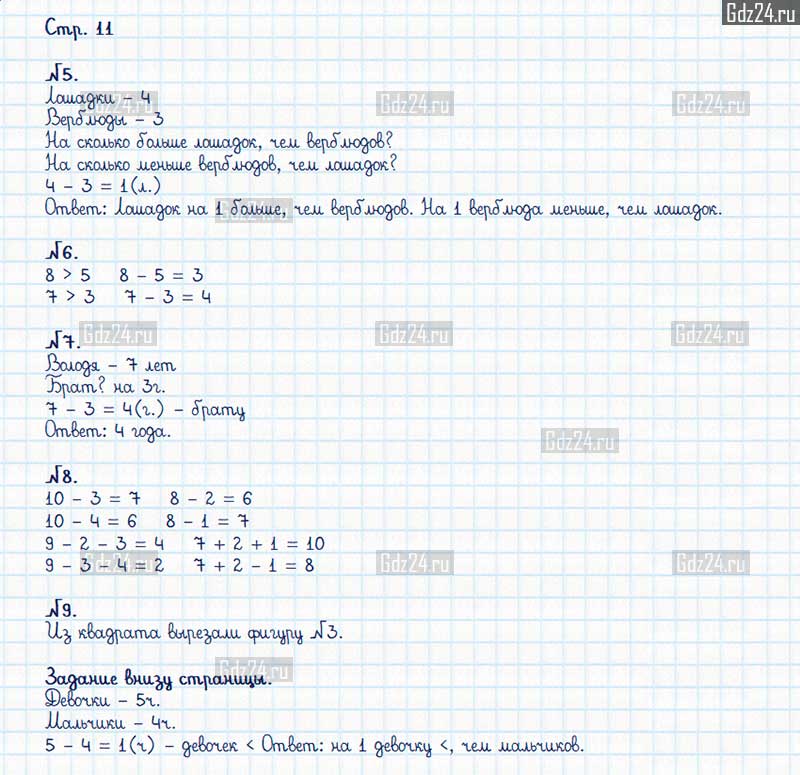 Gdz24.ru
Стр. 11
№5.
Лошадки - 4
Gdz24.ru Gdz24.ru Gdz24.ru
Верблюды - 3
На сколько больше лошадок, чем верблюдов?
На сколько меньше верблюдов, чем лошадок?
4 - 3 = 1(л.)
Ответ: Лошадок на 1 больше, чем верблюдов. На 1 верблюда меньше, чем лошадок.
Gdz24.ru
№6.
8 > 5 8 - 5 = 3
7 > 3 7 - 3 = 4
№7.
Gdz24.ru Gdz24.ru Gdz24.ru
Володя - 7 лет
Брат? на 3г.
7 - 3 = 4(г.) - брату
Ответ: 4 года.
Gdz24.ru
№8.
10 - 3 = 7 8 - 2 = 6
10 - 4 = 6 8 - 1 = 7
9 - 2 - 3 = 4 7 + 2 + 1 = 10
9 - 3 - 4 = 2 7 + 2 - 1 = 8
Gdz24.ru Gdz24.ru Gdz24.ru
№9.
Из квадрата вырезали фигуру №3.
Gdz24.ru
Задание внизу страницы.
Девочки - 5ч.
Мальчики - 4ч.
5 - 4 = 1(ч) - девочек < Ответ: на 1 девочку <, чем мальчиков.